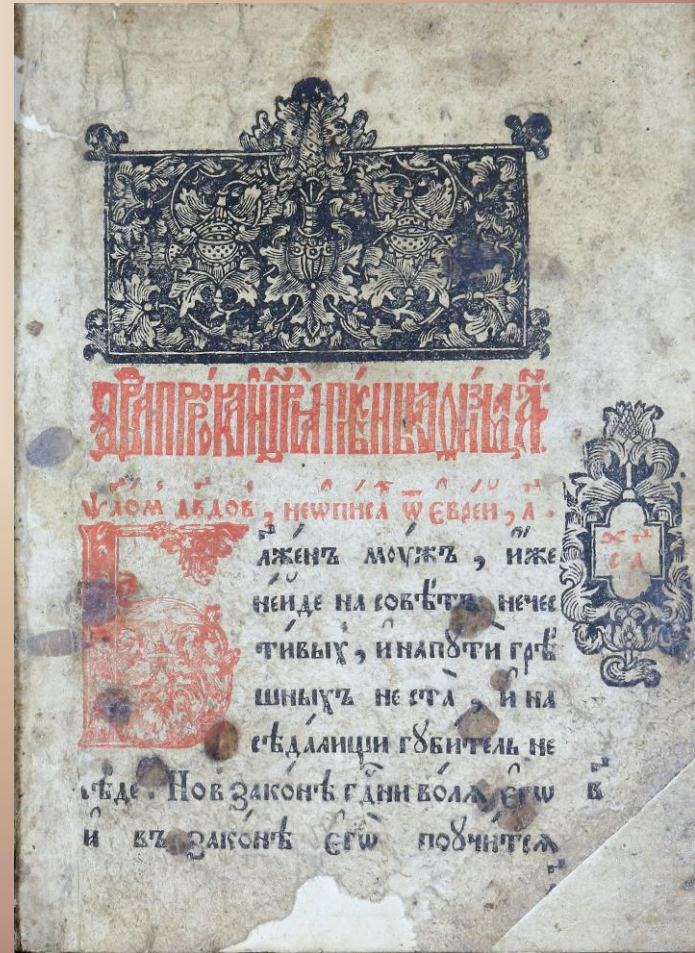 Дв҃да прⷪ҇рока и цр҃ѧ̀ пѣ́снь каѳі́сма а҃
Ѱало́м дв҃дов, неѡпи́сѧ ѿ евре́й, а҃.
Бл҃же́нъ мꙋ́жъ, и҆́же
не́йде на совѣ́тъ нечес
ти́выⷯ, и҆ на пꙋти́ грѣ́
шныхъ не ста̀, и҆ на
сѣда́лищи гꙋби́тель не
сѣ́де. Но в зако́нѣ гдⷭ҇ни во́лѧ є҆гѡ̀ в҃
и҆ въ зако́нѣ є҆гѡ̀ поꙋчи́тсѧ